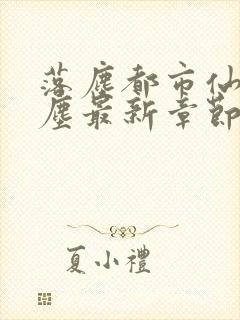 落塵都市仙
塵最新章節
夏小禮